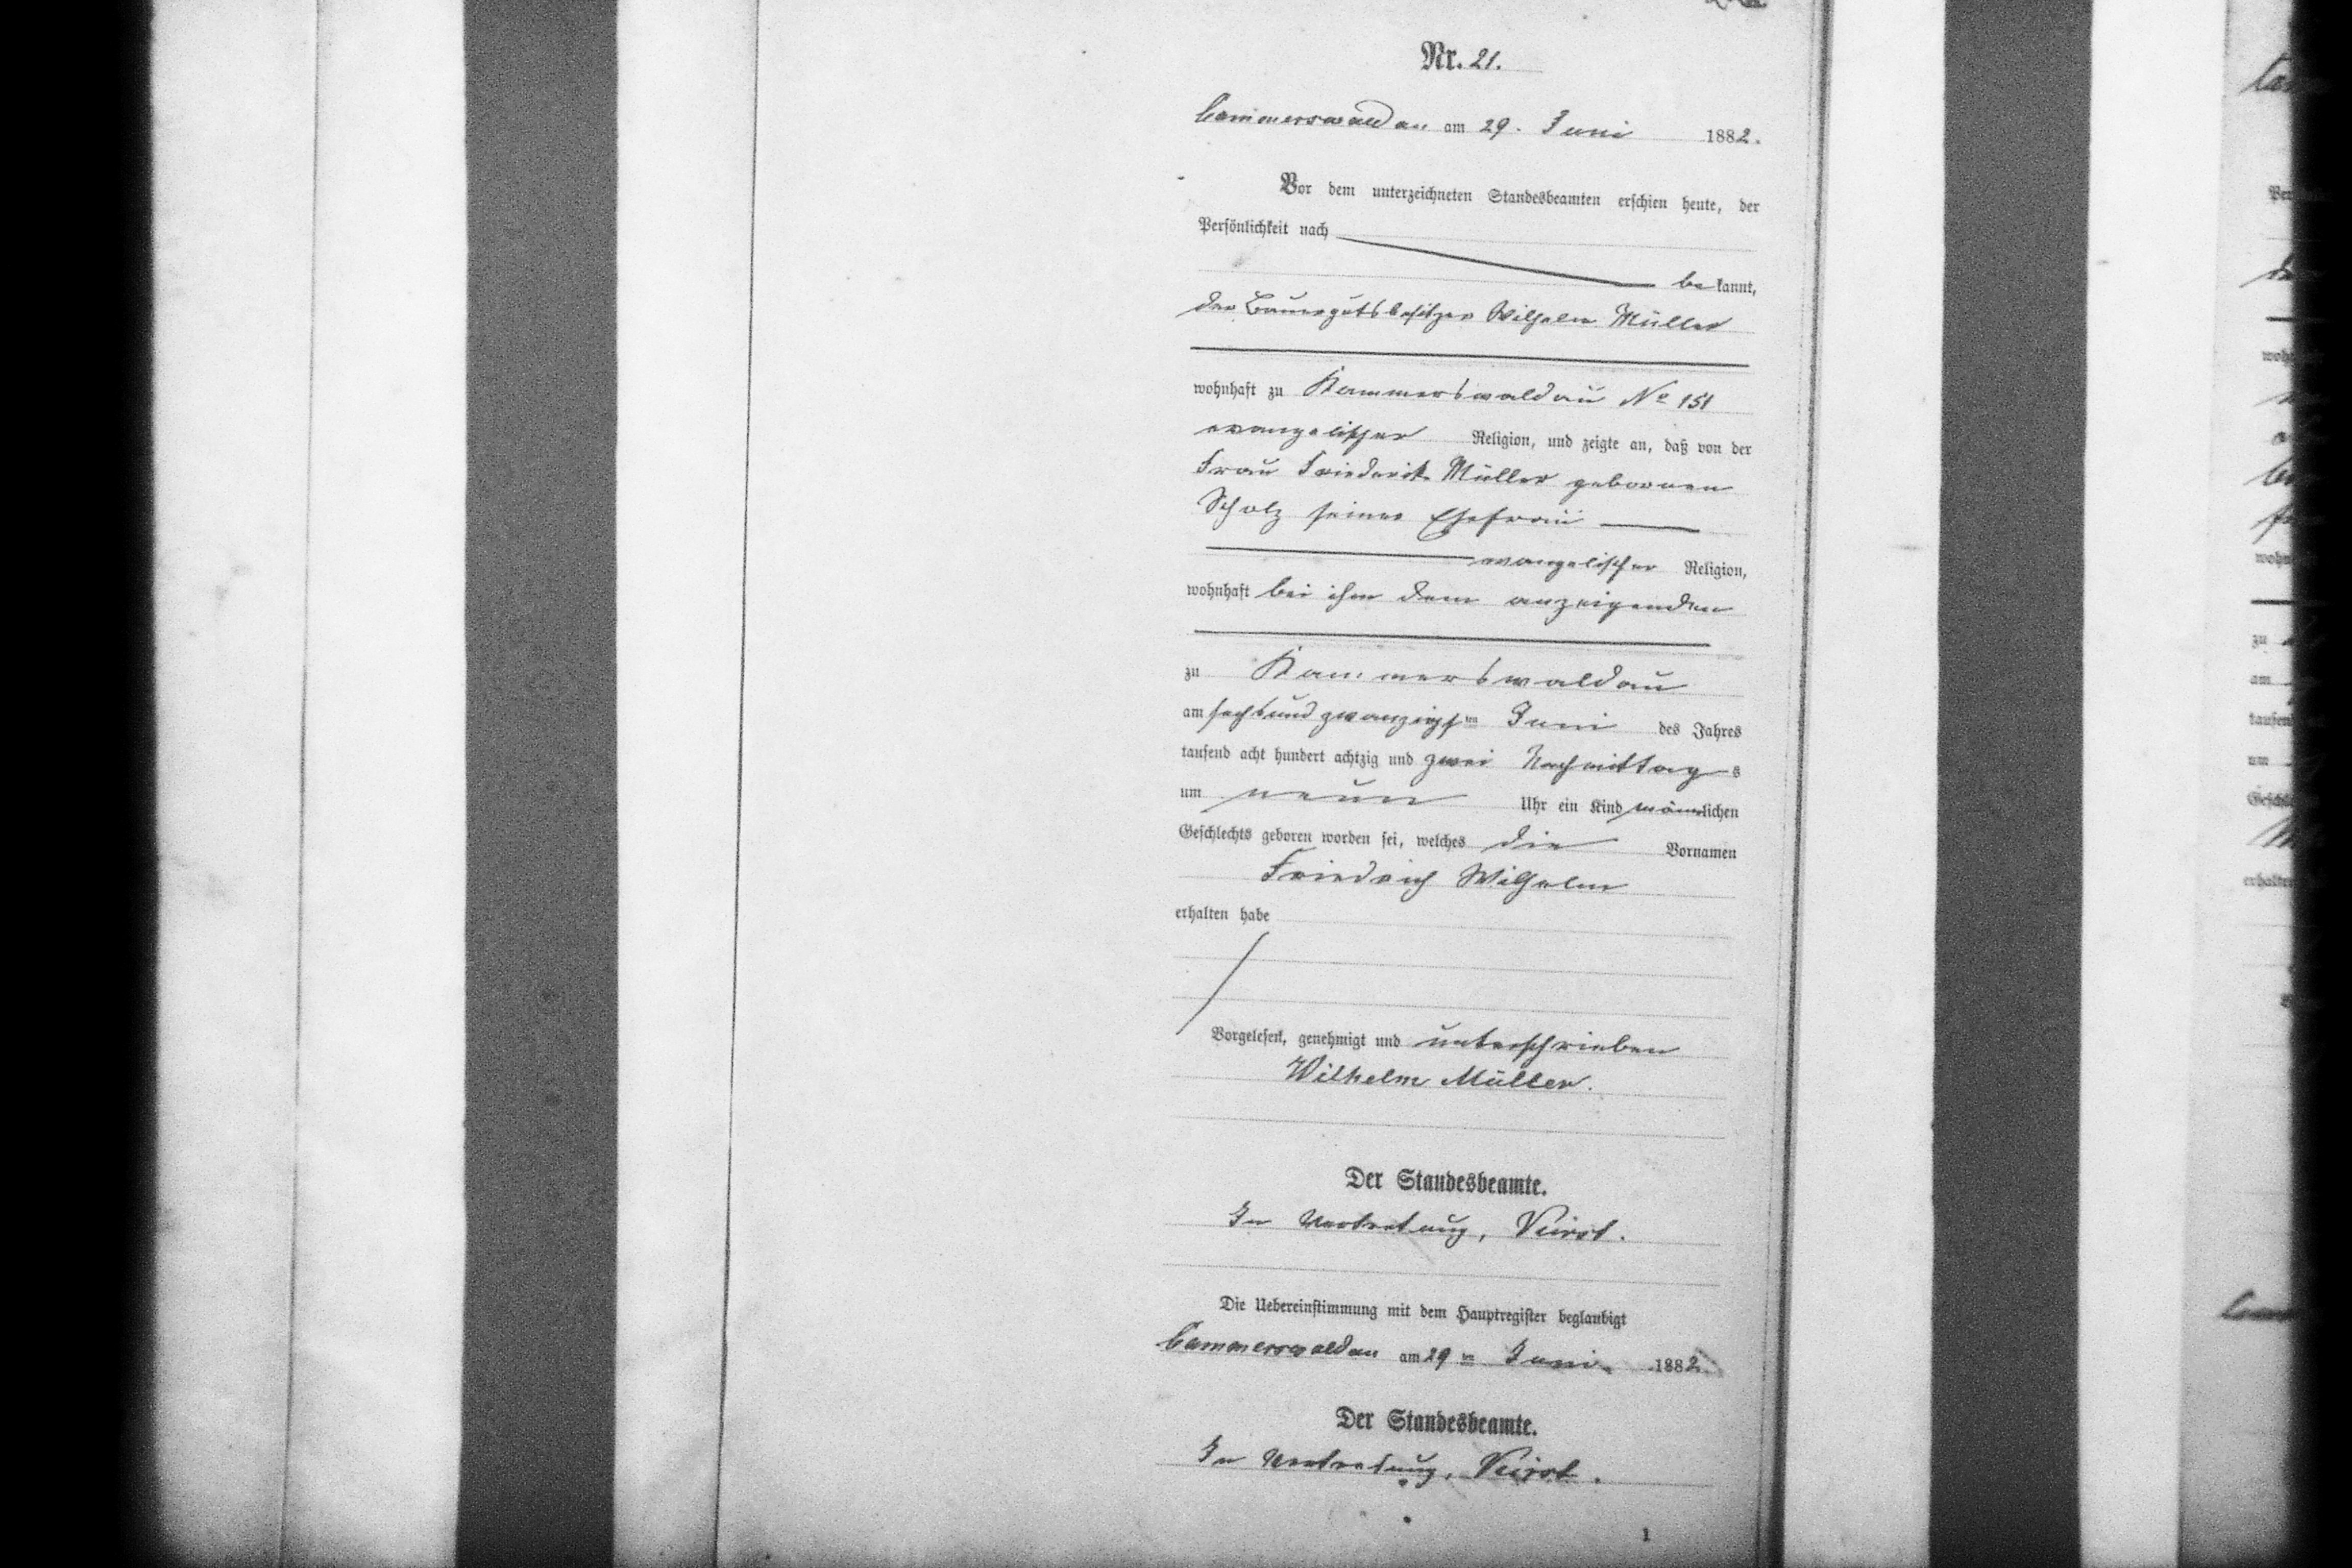 Nr. 21.
Cammerswaldau am 29. Juni 1882.
Vor dem unterzeichneten Standesbeamten erschien heute, der
Persönlichkeit nach
be kannt,
der Bauergutsbesitzer Wilhelm Müller
wohnhaft zu Kammerswaldau No 151
evangelischer Religion, und zeigte an, daß von der
Frau Friederike Müller gebornen
Scholz seiner Ehefrau
evangelischer Religion,
wohnhaft bei ihm dem anzeigenden
zu Kammerswaldau
am sechsundzwanzigsten Juni des Jahres
tausend acht hundert achtzig und zwei Nachmittags
um neun Uhr ein Kind männlichen
Geschlechts geboren worden sei, welches die Vornamen
Friedrich Wilhelm
erhalten habe
Vorgelesen, genehmigt und unterschrieben
Wilhelm Müller.
Der Standesbeamte.
In Vertretung,
Die Uebereinstimmung mit dem Hauptregister beglaubigt
Cammerswaldau am 29ten Juni 1882
Der Standesbeamte.
In Vertretung,
1